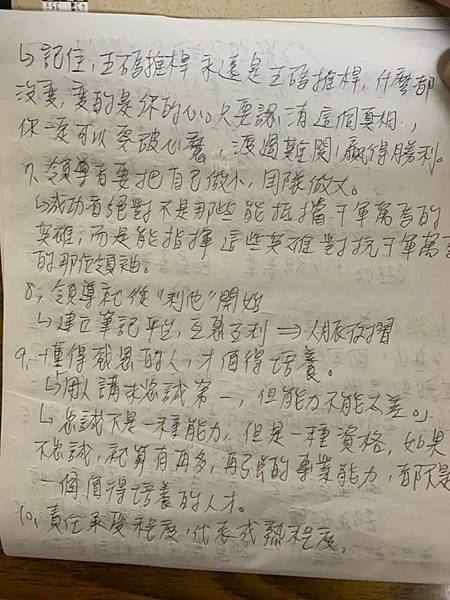 ↳記住,五碼推桿永遠是五碼推桿,什麼都
沒變,變的是你的心。只要認清這個真相,
你一定可以突破心魔,渡過難關,贏得勝利。
7、領導者要把自己做小,團隊做大。
↳成功者絕對不是那些能抵擋千軍萬馬的
英雄,而是能指揮這些英雄對抗千軍萬馬
的那位領袖。
8、領導就從"利他"開始
↳建立筆記平台,互惠互利⇒人脈
9、懂得感恩的人,才值得培養。
↳用人講求忠誠第一,但能力不能太差。
↳忠誠不是一種能力,但是一種資格,如果
不忠誠,就算有再多,再強的專業能力,都不是
一個值得培養的人才。
10、責任承受程度,代表成熟程度。